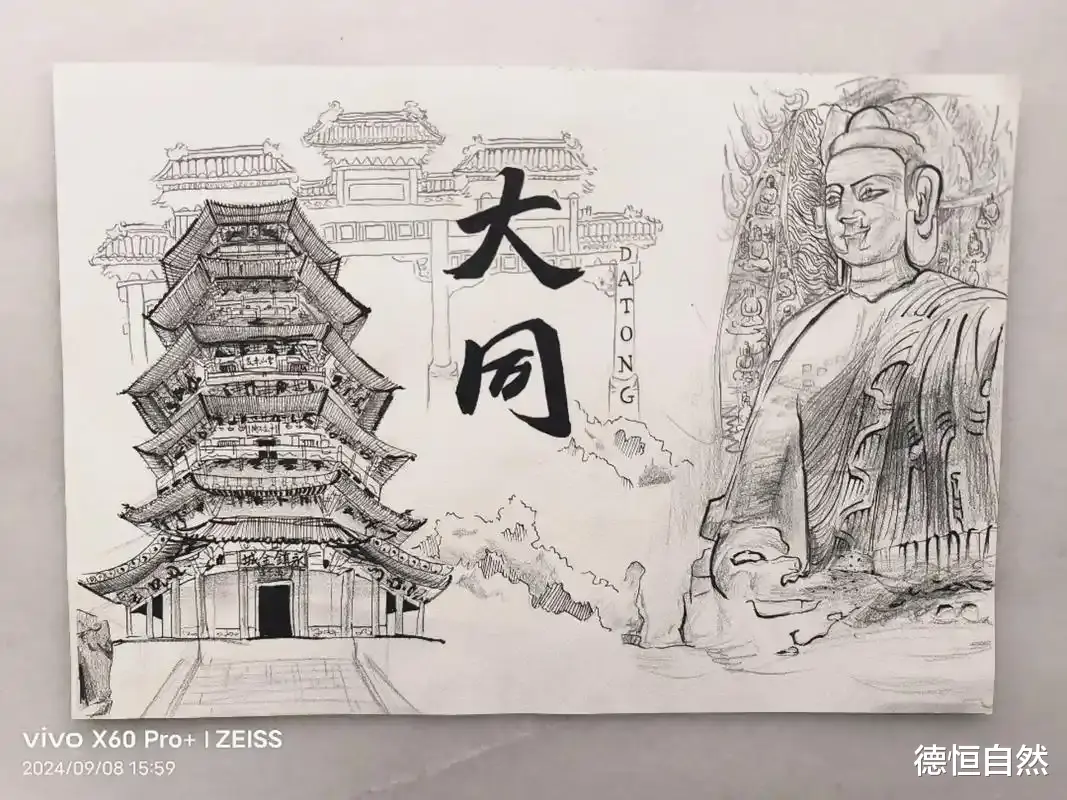 大同
DATONG
vivo X60 Pro+ | ZEISS
2024/09/08 15:59
德恒自然